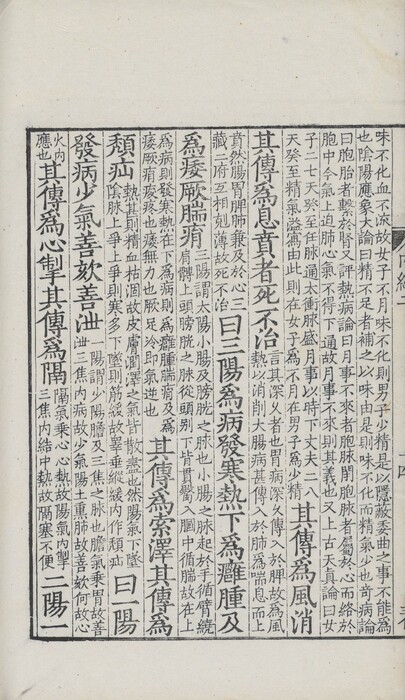 味不化血不流故女子不月味不化則男子少精是以隱蔽委曲之事不能為
也陰陽應象大論曰精不足者補之以味由是則味不化而精氣少也奇病論
曰胞胎者繫於腎又評熱病論曰月事不來者胞脉閉胞脉者屬於心而絡於
胞中今氣上迫肺心氣不得下通故月事不來則其義也又上古天真論曰女
子二七天癸至任脉通太衝脉盛月事以時下丈夫二八
天癸至精氣溢寫由此則在女子為不月在男子為少精
其傳為風消
其傳為息賁者死不治
言其深乆者也胃病深乆傳入於脾故為風
熱以消削大腸病甚傳入於肺為喘息而上
賁然腸胃脾肺兼及於心三
藏二府互相剋薄故死不治
曰三陽為病發寒熱下為癰腫及
為痿厥腨㾓
三陽謂太陽小腸及膀胱之脉也小腸之脉起於手循臂繞
肩髆上頭膀胱之脉從頭别下背貫臀入膕中循腨故在上
為病則發寒熱在下為病則為癰腫腨㾓及為
痿厥㾓痠疼也痿無力也厥足冷即氣逆也
其傳為索澤其傳為
頹疝
熱甚則精血枯涸故皮膚潤澤之氣皆散盡也然陽氣下墜
陰脉上爭上爭則寒多下墜則筋緩故睾垂縱緩内作頹疝
曰一陽
發病少氣善欬善泄
一陽謂少陽膽及三焦之脉也膽氣乗胃故善
泄三焦内病故少氣陽土熏肺故善欬何故心
火内
應也
其傳為心掣其傳為隔
隔氣乗心心熱故陽氣内掣
三焦内結中熱故隔塞不便
二陽一